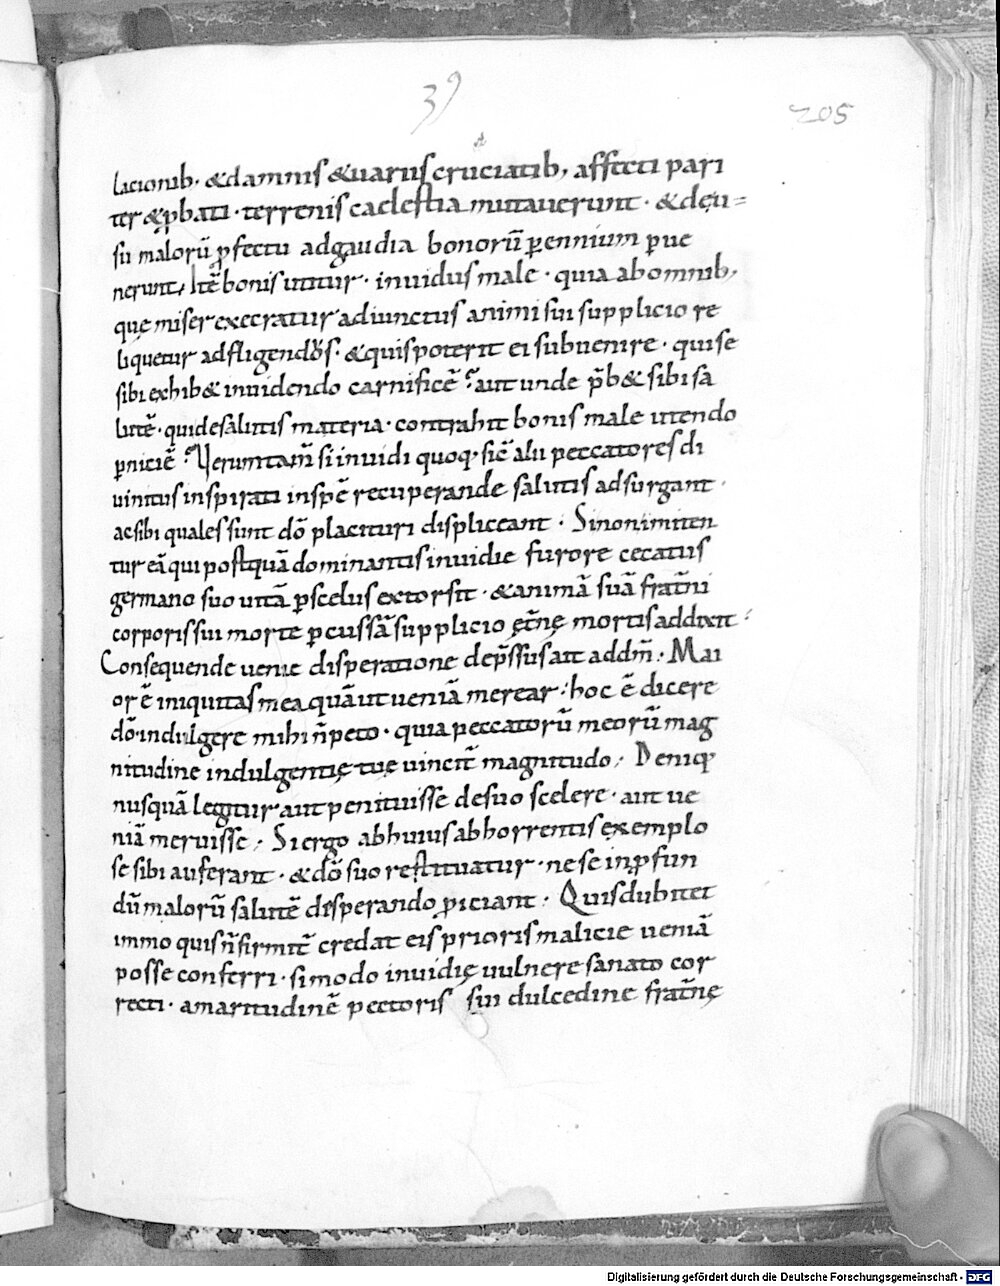 39
205
lacionib· & damnis & uariis cruciatib, affecti pari
ter & ꝓbati · terrenis caelestia mutauerunt · & de u=
su malorū ꝓfectu ad gaudia bonorū ꝑennium ꝑue
nerunt, Itē bonis utitur · inuidus male · quia ab omnib,
quę miser execratur adiunctus animi sui supplicio re
liquetur adfligendus · & quis poterit ei subuenire · qui se
sibi exhib& inuidendo carnificē ? aut unde p̄b& sibi sa
lutē · qui de salutis materia · contrahit bonis male utendo
ꝑniciē ? Verumtam̄ si inuidi quoq, sic̄ alii peccatores di
uinitus inspirati in spē recuperande salutis adsurgant ·
ac sibi quales sunt dō placituri displiceant · Si non imiten
tur eā qui postquā dominantis inuidie furore cecatus
germano suo uitā ꝑ scelus extorsit · & animā suā frat̄ni
corporis sui morte ꝑcussā supplicio ęt̄nę mortis addixit :
Consequende uenie disperatione dep̄ssus ait ad dm̄ · Mai
or ē iniquitas mea quā ut ueniā merear : hoc ē dicere
dō · indulgere mihi n̄ peto · quia peccatorū meorū mag
nitudine indulgentię tuę uincit̄ magnitudo, Deniq,
nusquā legitur aut penituisse de suo scelere · aut ue
niā meruisse, Si ergo ab huius abhorrentis exemplo
se sibi auferant · & dō suo restituatur · ne se in ꝓfun
dū malorū salutē desperando ꝓiciant · Quis dubitet
immo quis n̄ firmit̄ credat eis prioris malicie ueniā
posse conferri · si modo inuidię uulnere sanato cor
recti · amaritudinē pectoris sui dulcedine frat̄nę
Digitalisierung gefördert durch die Deutsche Forschungsgemeinschaft - DFG